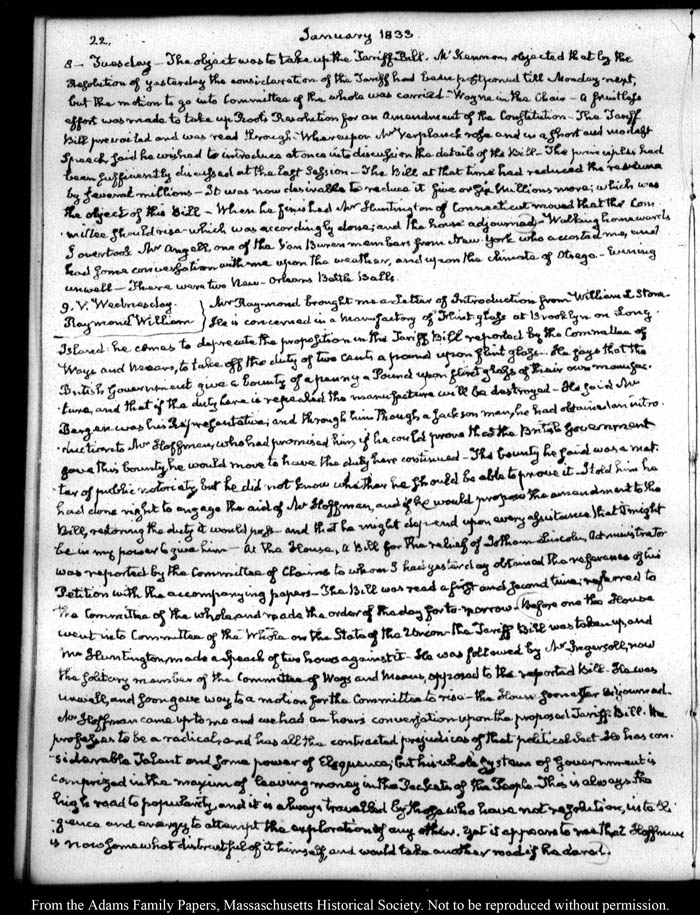 22.
January 1833.
8 – Tuesday – The object was to take up the Tariff-Bill. Mr Kennon, objected that by the
Resolution of yesterday the consideration of the Tariff had been postponed till Monday next,
but the motion to go into Committee of the whole was carried – Wayne in the Chair – A fruitless
effort was made to take up Root's Resolution for an Amendment of the Constitution – The Tariff
Bill prevailed and was read through – Whereupon Mr Verplanck rose and in a short and modest
Speech said he wished to introduce at once into discussion the details of the Bill – The principles had
been sufficiently discussed at the last Session – The Bill at that time had reduced the revenue
by several millions – It was now desirable to reduce it five or six Millions more; which was
the object of this Bill – When he finished Mr Huntington of Connecticut moved that the Com-
mittee should rise which was accordingly done; and the house adjourned – Walking homewards
I overtook Mr Angell, one of the Van Buren members from New-York who accosted me, and
had some conversation with me upon the weather, and upon the climate of Otsego – Evening
unwell – There were two New-Orleans Battle Balls.
9. V. Wednesday.
Raymond William
Mr Raymond brought me a Letter of Introduction from William L Stone.
He is concerned in a Manufactory of Flint glass at Brooklyn on Long-
Island: he comes to deprecate the proposition in the Tariff Bill reported by the Committee of
Ways and Means, to take off the duty of two cents a pound upon flint glass – He says that the
British Government give a bounty of a penny a Pound upon flint glass of their own manufac-
ture, and that if the duty here is repealed the manufacture will be destroyed – He said Mr
Bergen was his Representative; and through him though a Jackson man, he had obtained an intro-
duction to Mr Hoffman, who had promised him, if he could prove that the British Government
gave this bounty he would move to have the duty here continued – The bounty he said was a mat-
ter of public notoriety but he did not know whether he should be able to prove it. I told him he
had done right to engage the aid of Mr Hoffman, and if he would propose the amendment to the
Bill, restoring the duty it would pass – and that he might depend upon every assistance that I might
be in my power to give him – At the House, a Bill for the relief of Lincoln, Administrator
was reported by the Committee of Claims to whom I had yesterday obtained the reference of his
Petition with the accompanying papers – The Bill was read a first and second time; referred to
the Committee of the whole and made the order of the day for to-morrow – Before one the House
went into Committee of the Whole on the State of the Union – The Tariff Bill was taken up and
Mr Huntington made a Speech of two hours against it – He was followed by Mr Ingersoll, now
the solitary member of the Committee of Ways and Means, opposed to the reported Bill – He was
unwell, and soon gave way to a motion for the Committee to rise – the House soon after adjourned.
Mr Hoffman came up to me and we had an hours conversation upon the proposed Tariff-Bill. He
professes to be a radical, and has all the contracted prejudices of that political Sect. He has con-
siderable Talent and some power of Eloquence; but his whole System of Government is
comprized in the maxim of leaving money in the Pockets of the People. This is always the
high road to popularity, and it is always travelled by those who have not resolution, intelli-
gence and energy to attempt the exploration of any other. Yet it appears to me that Hoffman
is now somewhat distrustful of it himself, and would take another road if he dared.
From the Adams Family Papers, Massachusetts Historical Society. Not to be reproduced without permission.